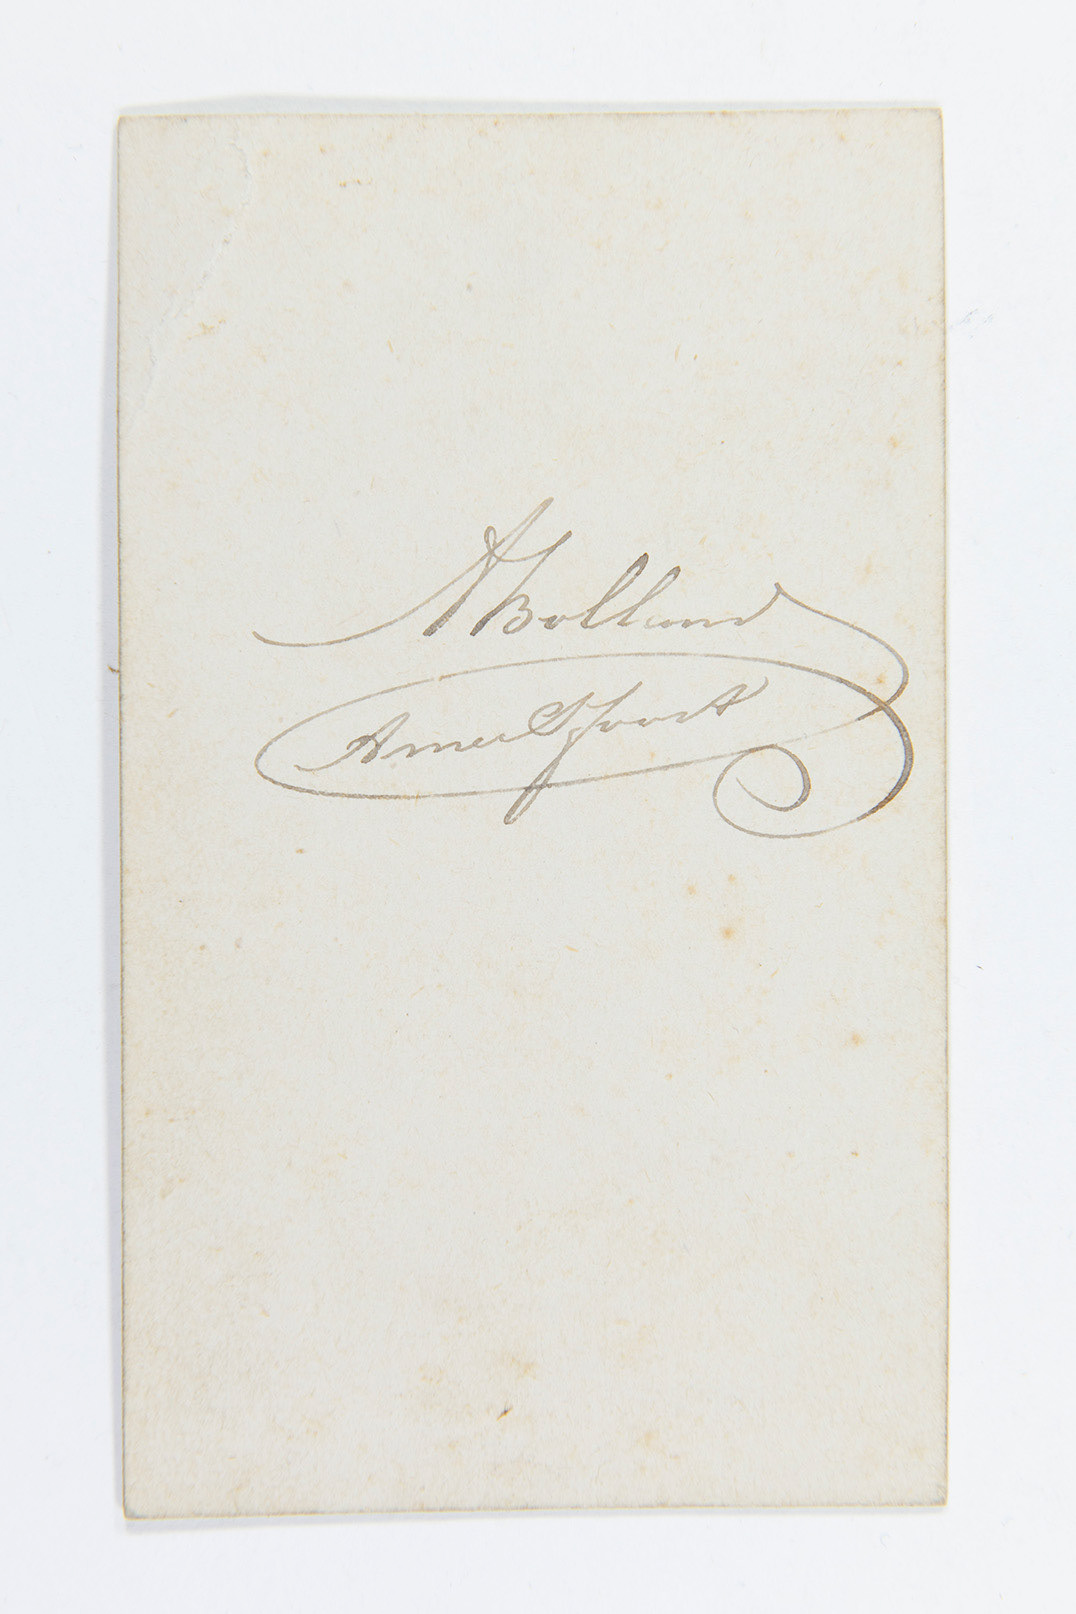 A Bolland
Amersfoort